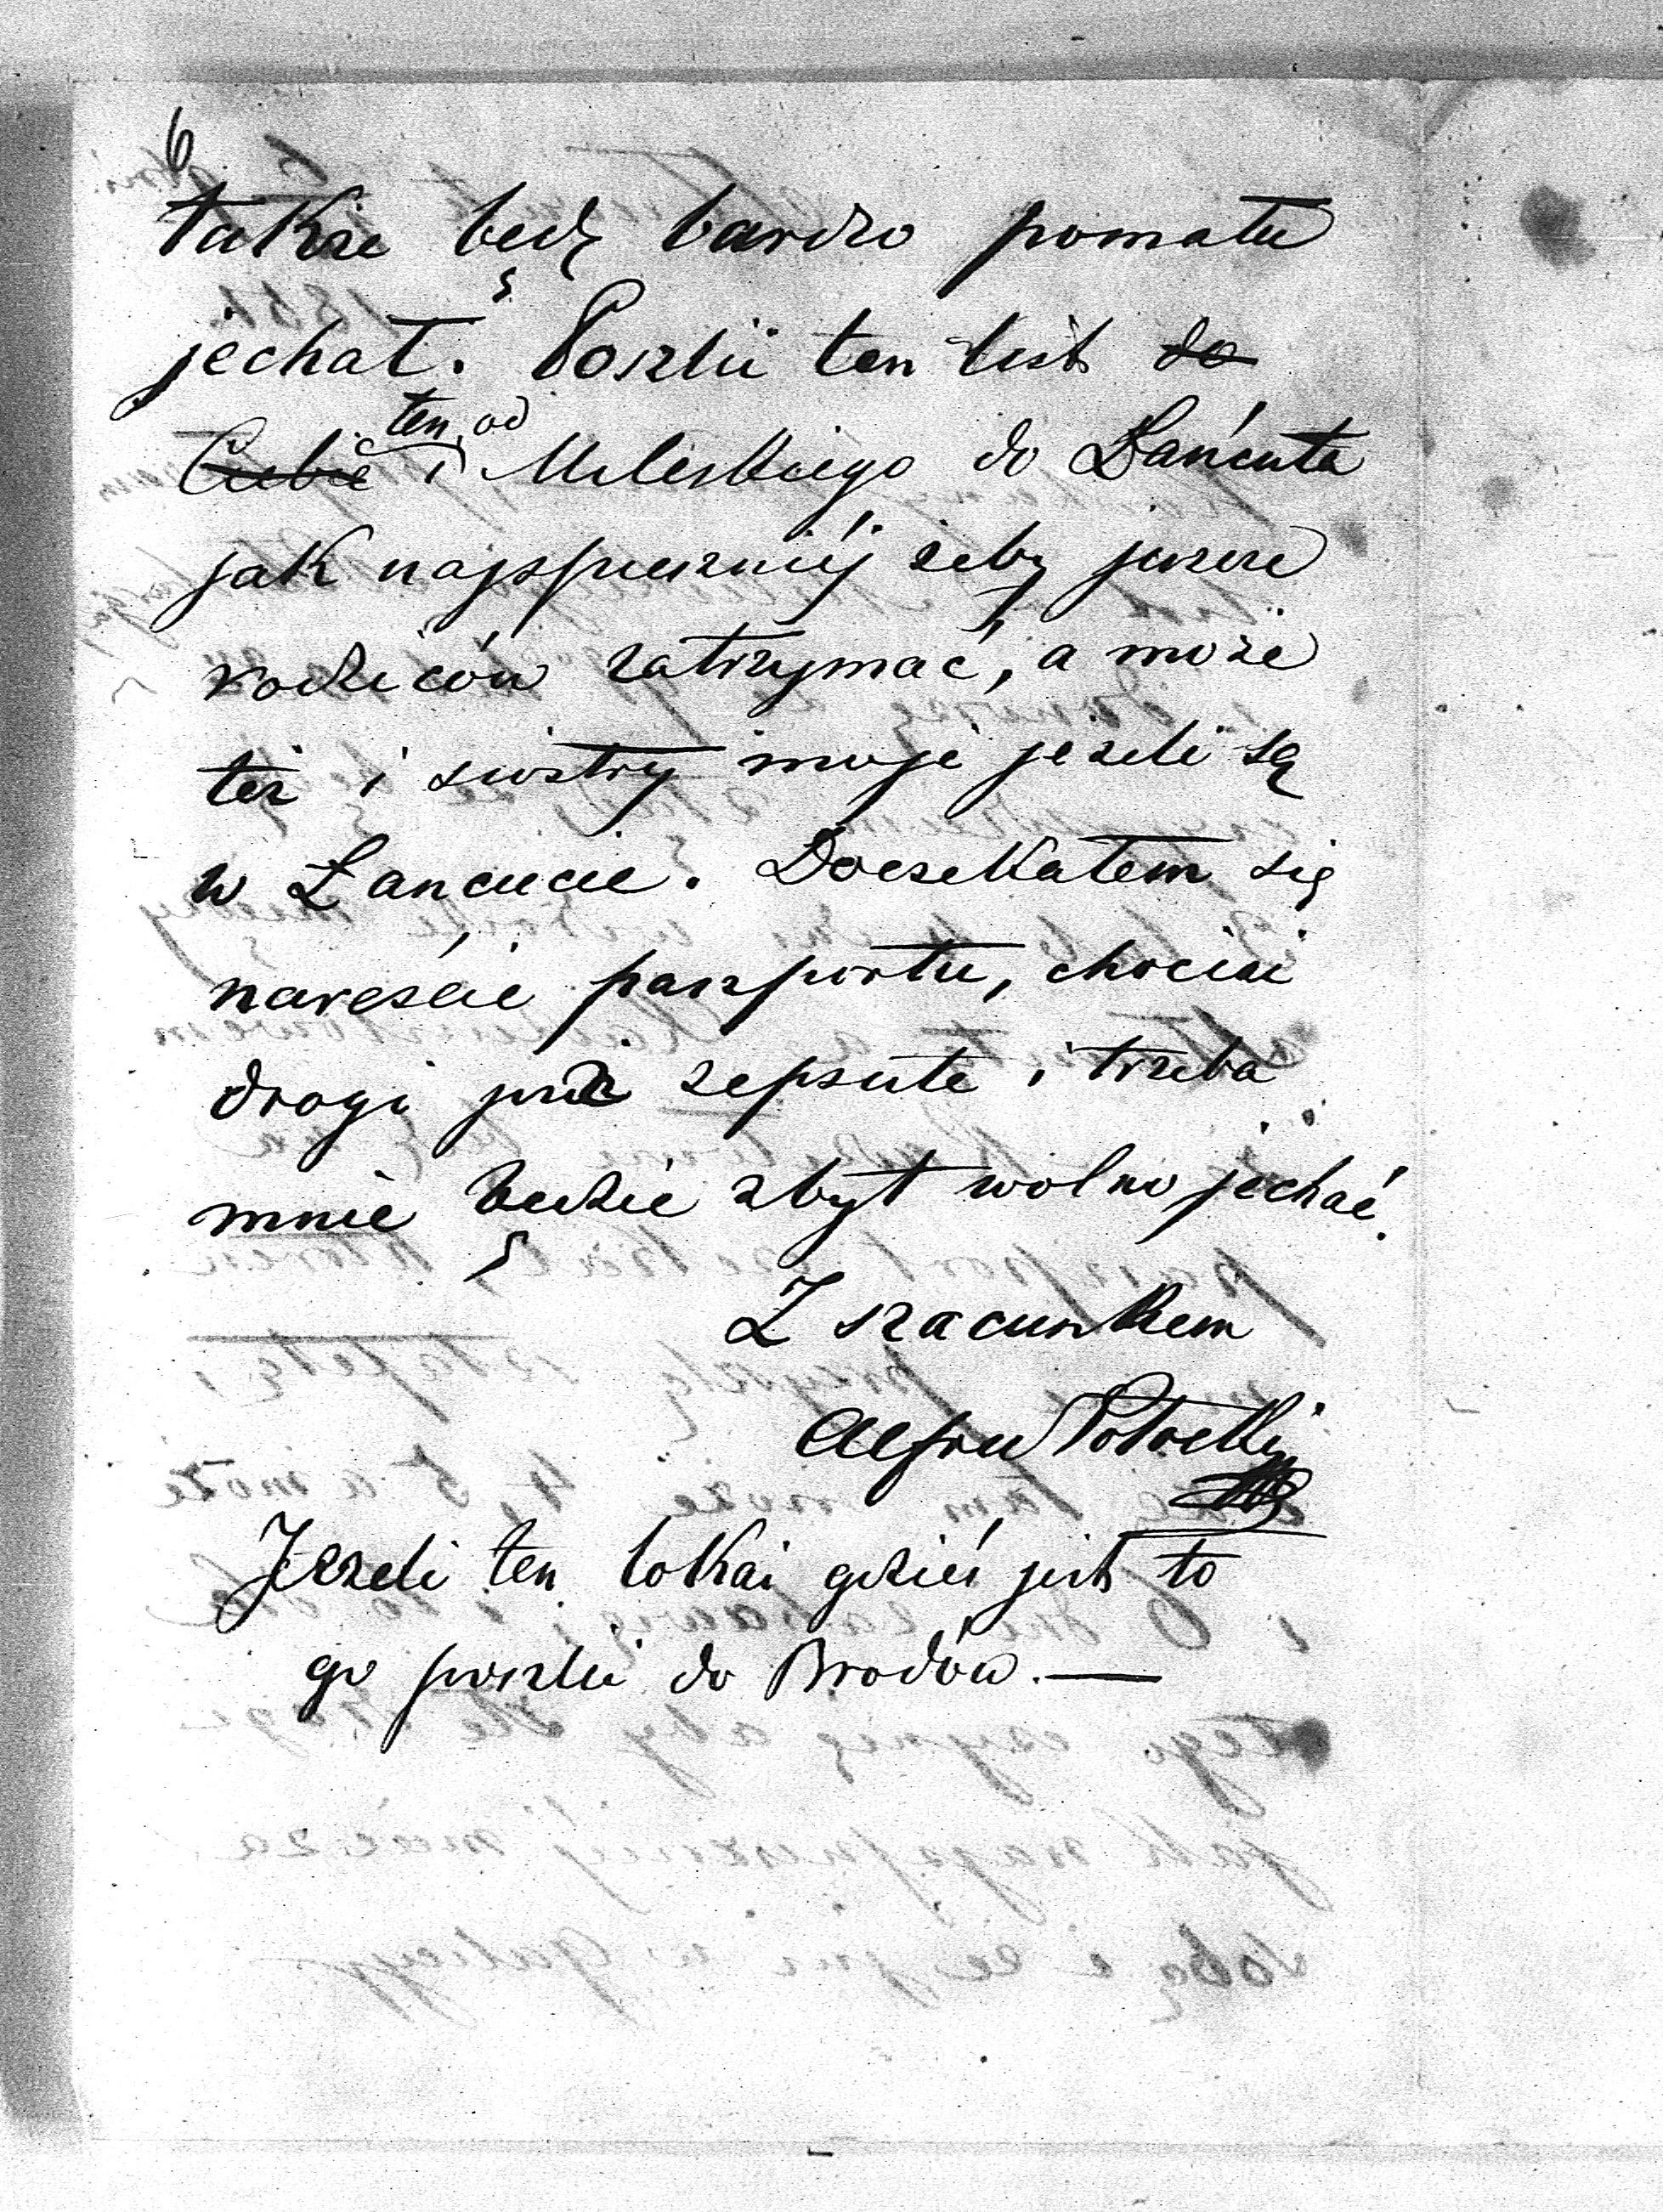 6
także będę bardzo pomału
jechał. Poszlii ten list do
Ciebie i ten od Mileskiego do Łańcuta
jak najspieszniéj żeby jeszcze
rodziców zatrzymać, a może
też i siostry moje jeżeli są
w Łancucie. Doczekałem się
nareście paszportu, chociaż
drogi już zepsute i trzeba
mnie będzie zbyt wolno jechać.
Z szacunkem
Alfred Potocki
Jeżeli ten lokai gdzieś jest to
go poszlii do Brodów. —